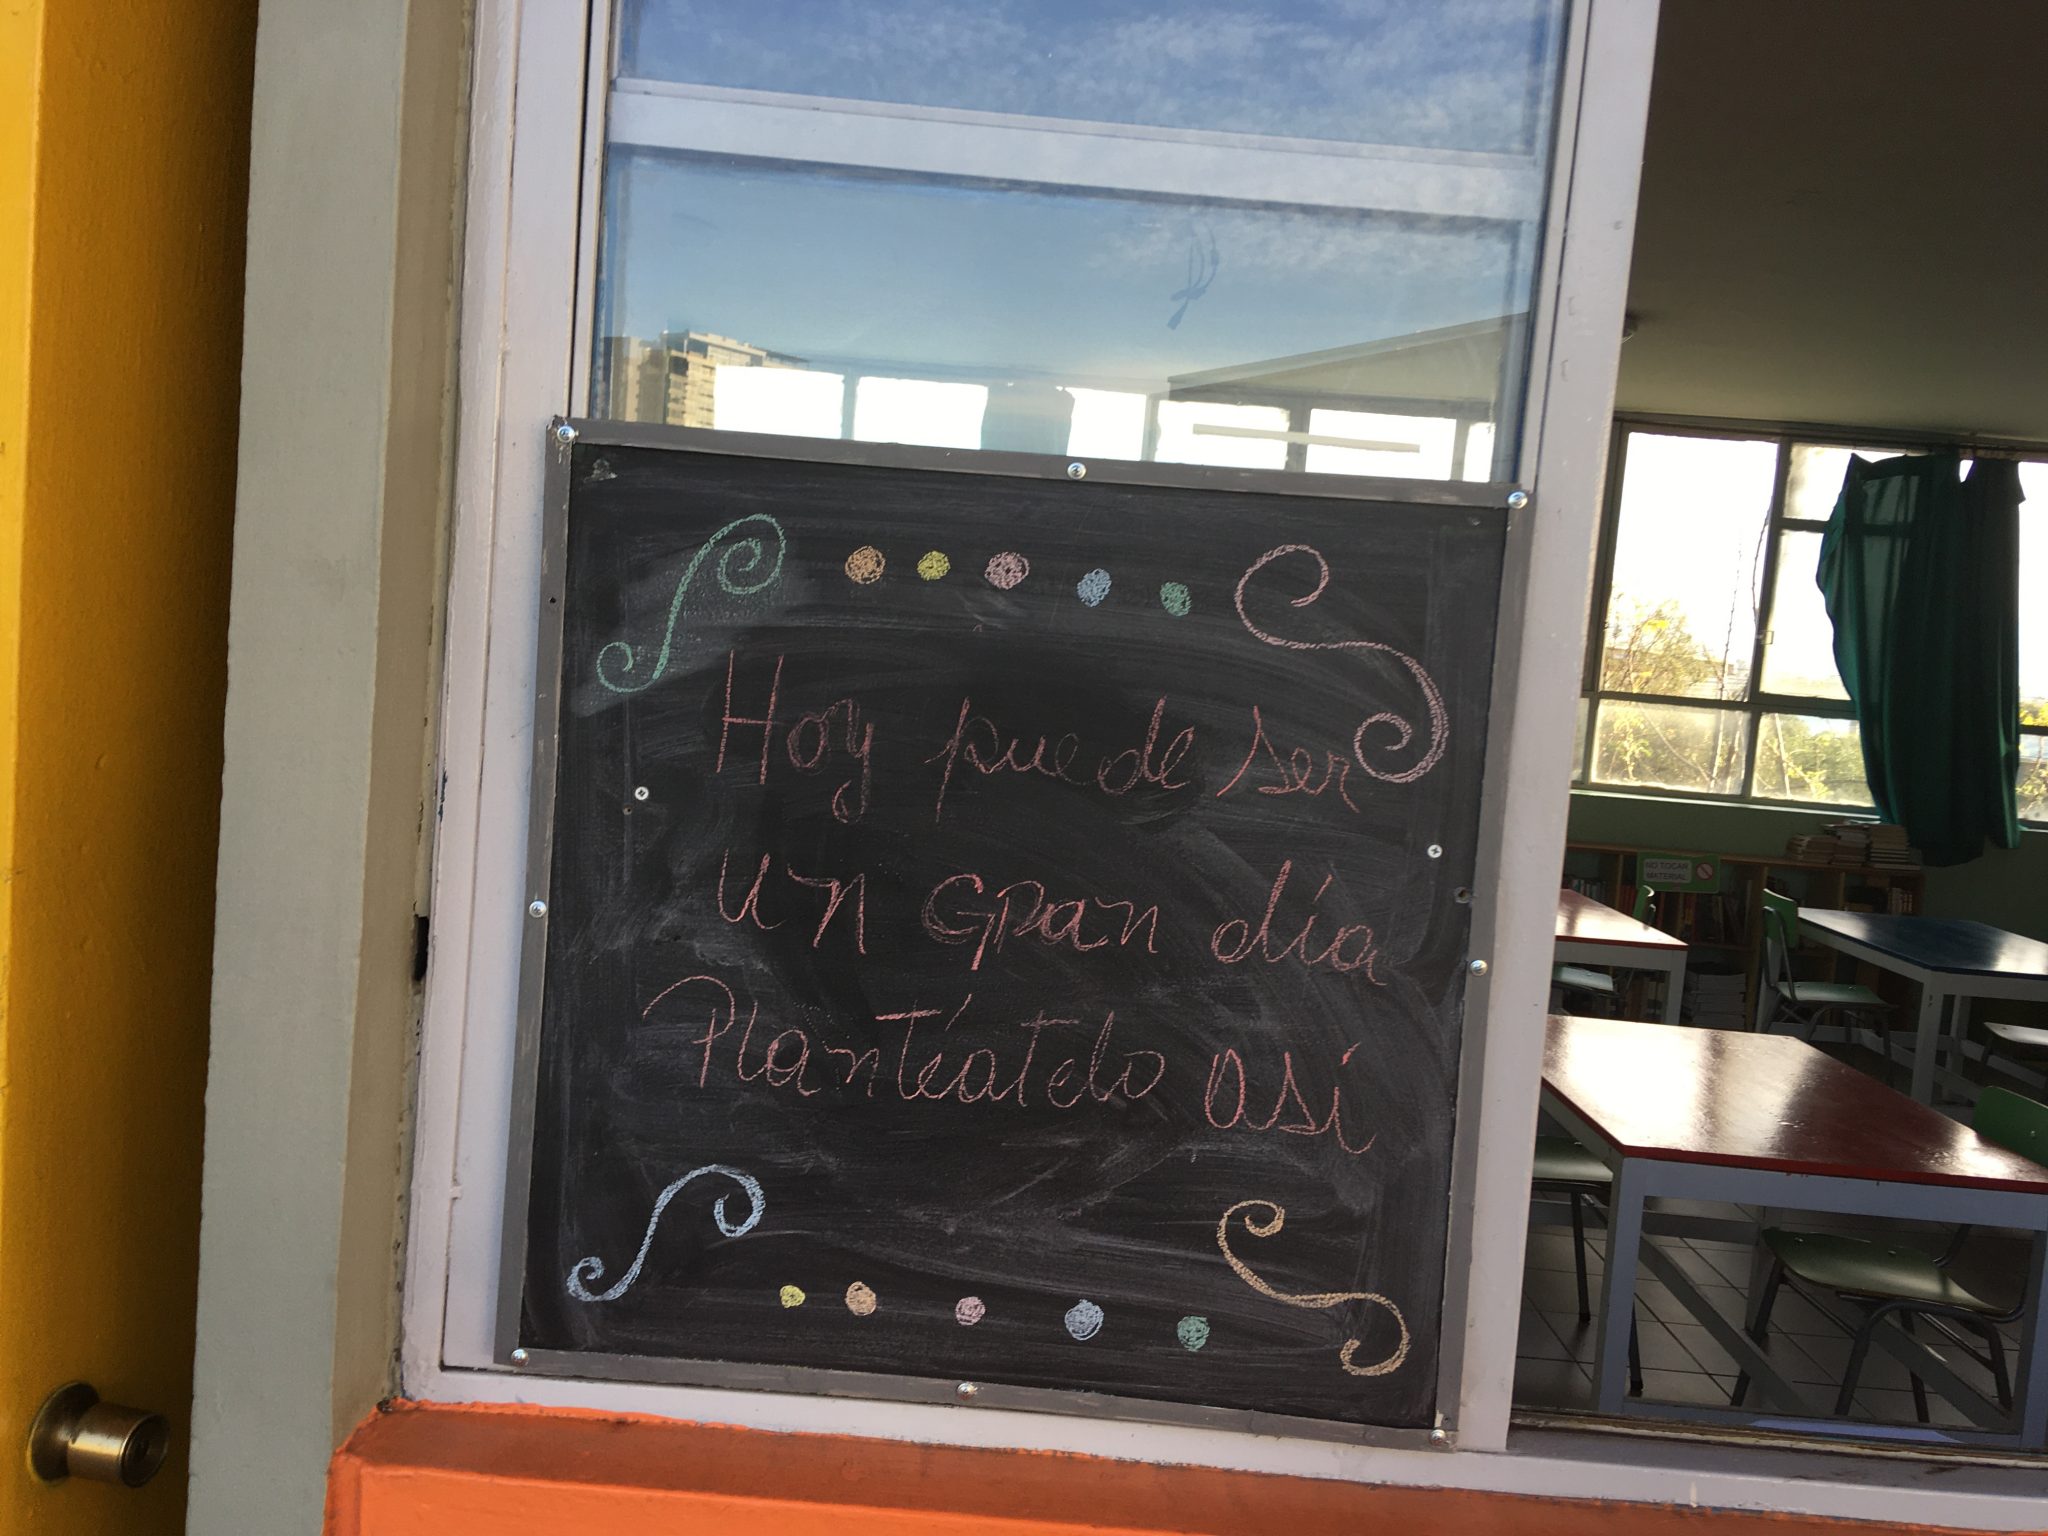 Hoy puede ser
un Gran día
Plantéatelo así
NO TOCAR
MATERIAL